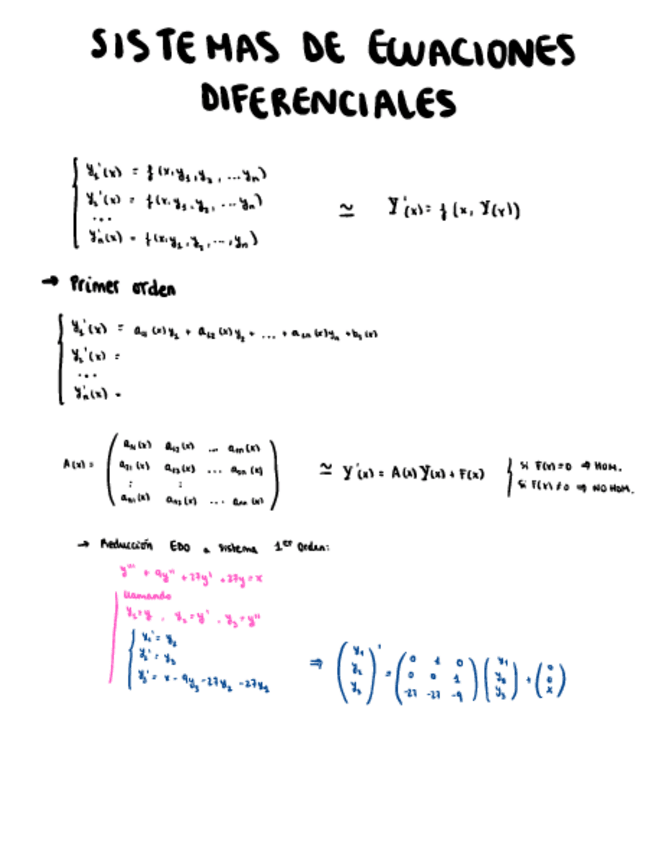 SISTEMAS DE ECUACIONES
DIFERENCIALES
y₁'(x) = f(x, y₁, y₂, ... yₙ)
y₂'(x) = f(x, y₁, y₂, ... yₙ)
...
yₙ'(x) = f(x, y₁, y₂, ..., yₙ)
≃ Y'(x) = f(x, Y(x))
→ Primer orden
y₁'(x) = a₁₁(x)y₁ + a₁₂(x)y₂ + ... + a₁ₙ(x)yₙ + b₁(x)
y₂'(x) =
...
yₙ'(x) =
A(x) =
a₁₁(x) a₁₂(x) ... a₁ₙ(x)
a₂₁(x) a₂₂(x) ... a₂ₙ(x)
: :
aₙ₁(x) aₙ₂(x) ... aₙₙ(x)
≃ Y'(x) = A(x) Y(x) + F(x)
si F(x)=0 → HOM.
si F(x)≠0 ⇒ NO HOM.
→ Reducción EDO a sistema 1er Orden:
y''' + 9y'' + 27y' + 27y = x
llamando
y₁=y, y₂=y', y₃=y''
y₁' = y₂
y₂' = y₃
y₃' = x - 9y₃ - 27y₂ - 27y₁
⇒ (y₁ y₂ y₃)' = (0 1 0 0 0 1 -27 -27 -9)(y₁ y₂ y₃) + (0 0 x)